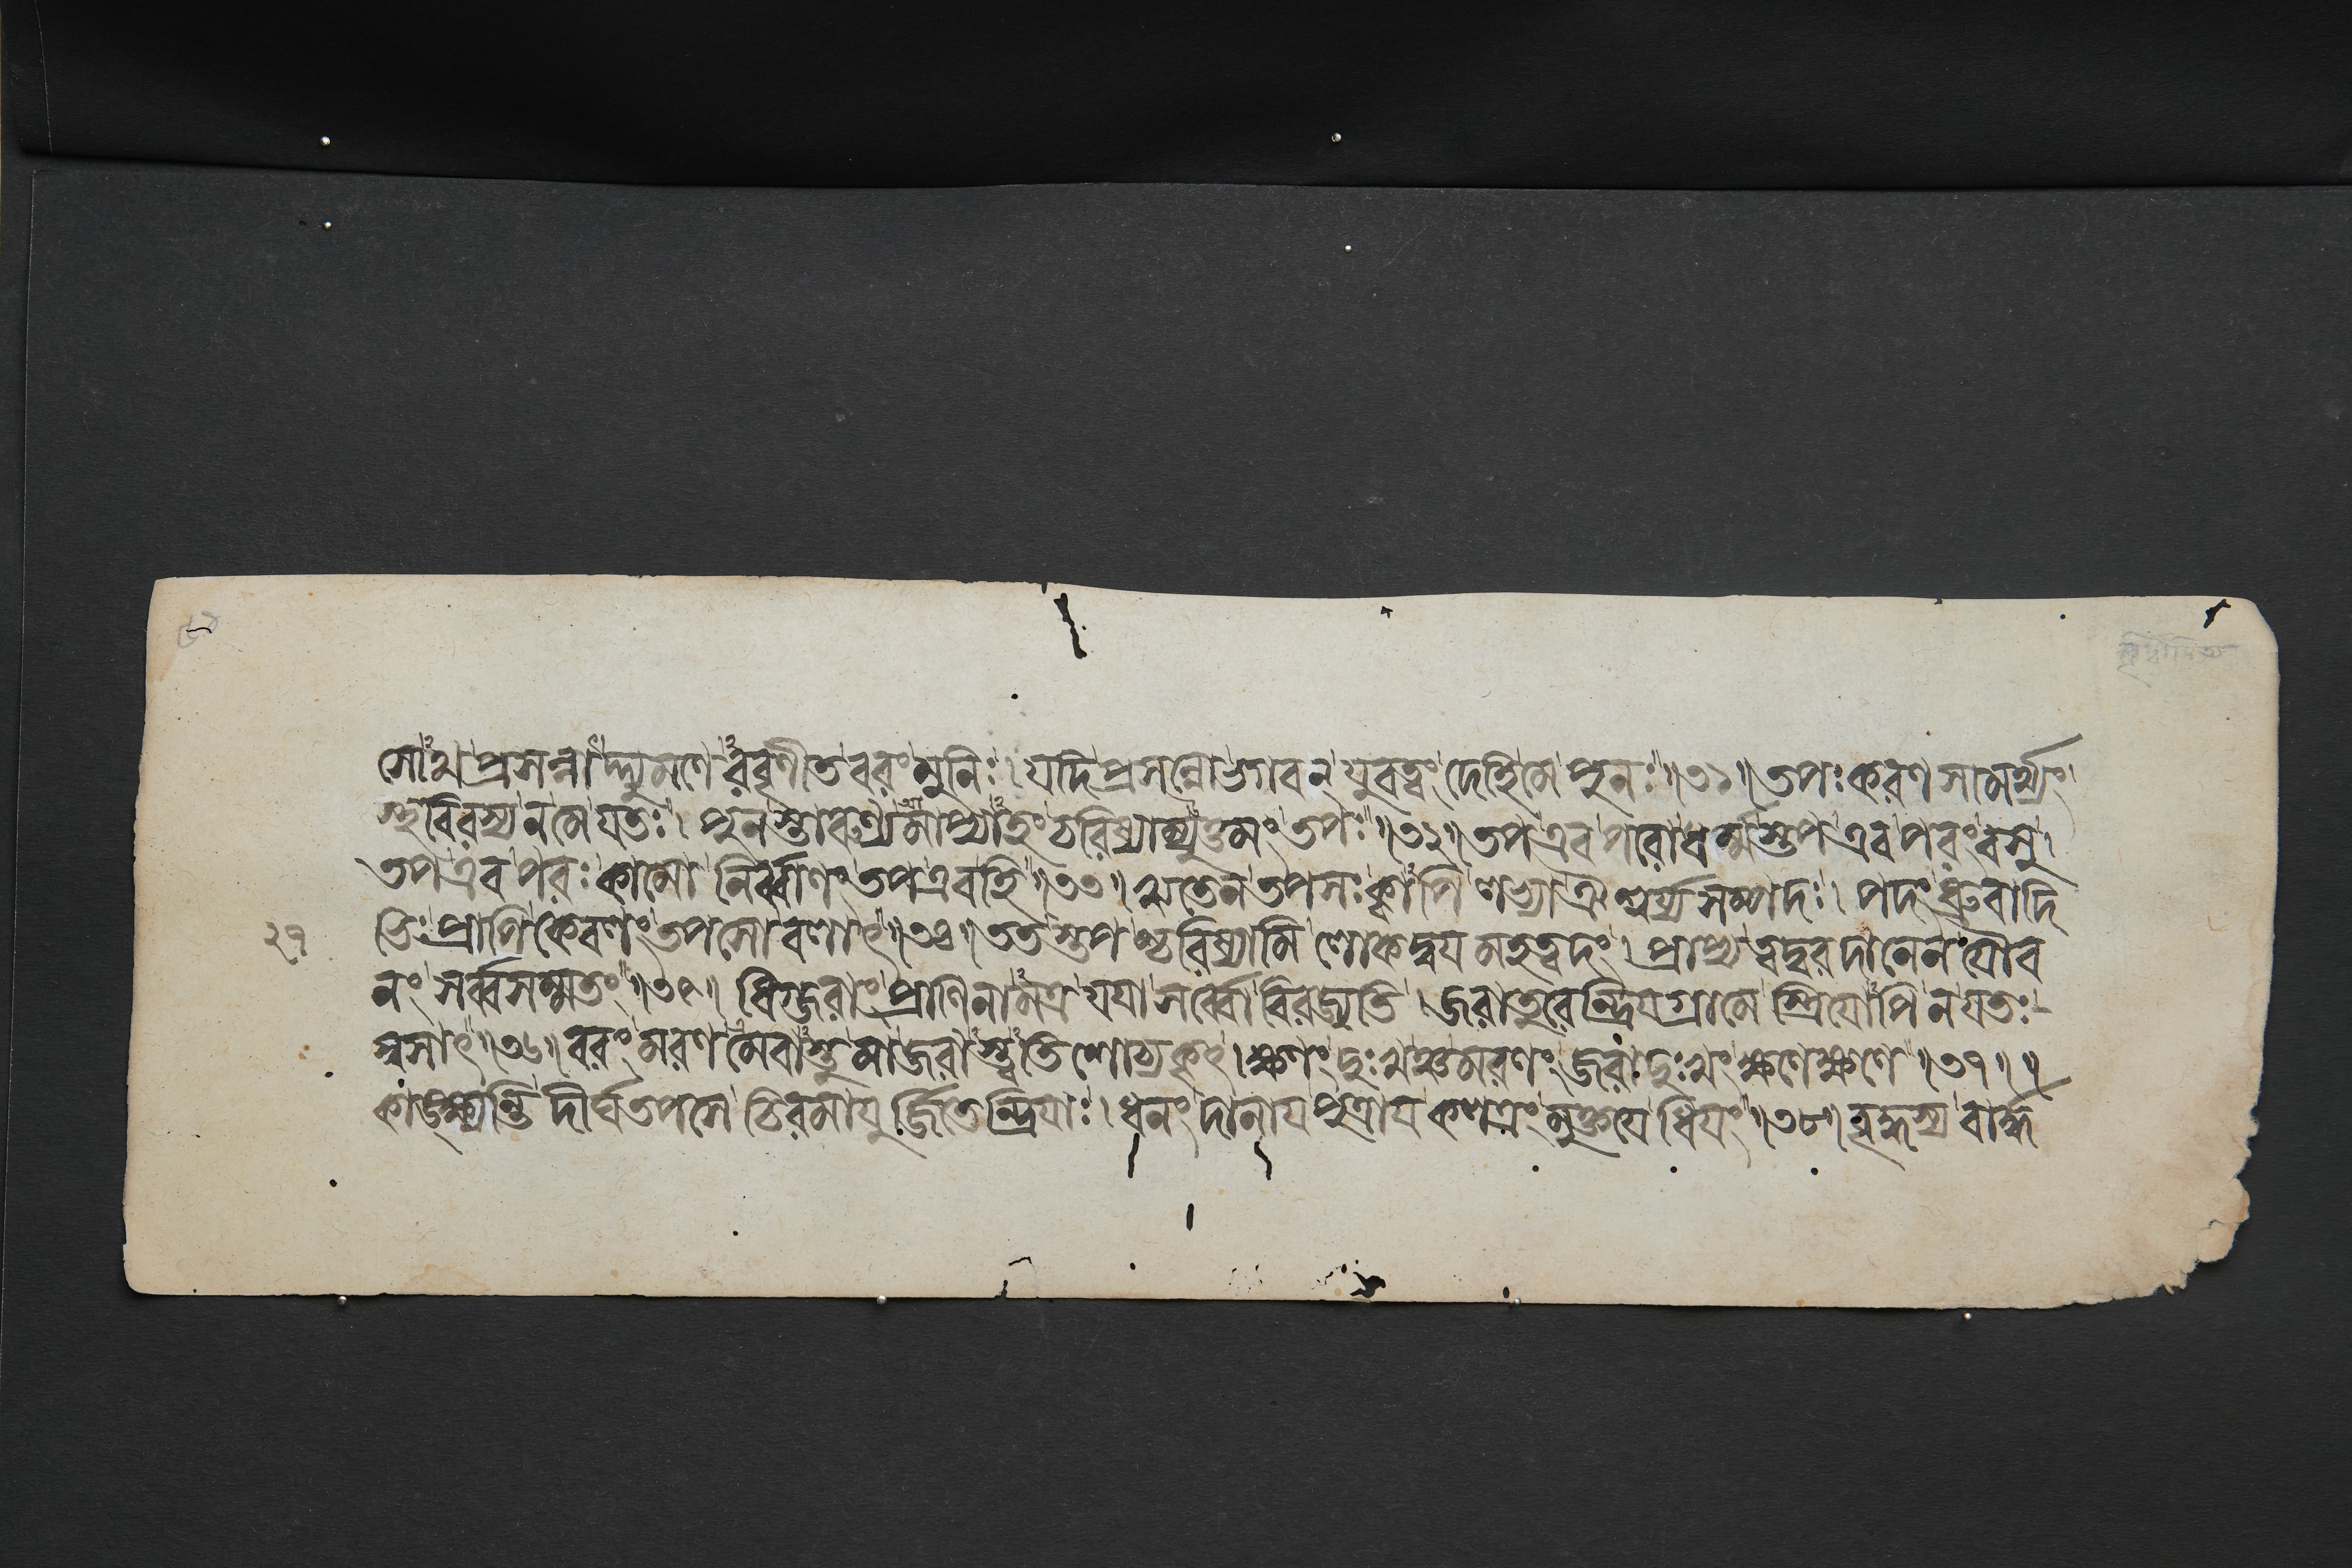 সোঽথ প্রসন্নাদ্দ্যুমণেরবৃণীত বরং মুনিঃ। যদি প্রসন্নো ভগবন্ যুবত্বং দেহি মে পুনঃ॥৩১॥ তপঃকরণসামর্থ্যং
স্থবিরস্য ন মে যতঃ। পুনস্তারুণ্যমাপ্যাহং চরিষ্যাম্যুত্তমং তপঃ॥৩২॥ তপ এব পরো ধর্ম্মস্তপ এব পরং বসু।
তপ এব পরঃ কামো নির্ব্বাণং তপ এব হি॥৩৩॥ ঋতেন তপসঃ ক্বাপি লভ্যা ঐশ্বর্য্যসম্পদঃ। পদং ধ্রুবাদি
২৭ ভিঃ প্রাপি কেবলং তপসো বলাৎ॥৩৪॥ ততস্তপশ্চরিষ্যামি লোকদ্বযমহত্বদং। প্রাপ্য ত্বদ্বরদানেন যৌব
নং সর্ব্বসম্মতং॥৩৫॥ ধিগ্জরাং প্রাণিনামত্র যযা সর্ব্বো বিরজ্যতি। জরাতুরেন্দ্রিযগ্রামে স্ত্রিযোপি ন যতঃ
স্বসাৎ॥৩৬॥ বরং মরণমেবাস্তু মা জরাস্ত্বতিশোচ্যকৃৎ। ক্ষণং দুঃখঞ্চ মরণং জরা দুঃখং ক্ষণে ক্ষণে॥৩৭॥॥
কাঙ্ক্ষ্যন্তি দীর্ঘতপসে চিরমাযুর্জ্জিতেন্দ্রিযাঃ। ধনং দানায পুত্রায কলত্রং মুক্তযে ধিযং॥৩৮॥ বৃদ্ধস্য বার্দ্ধ